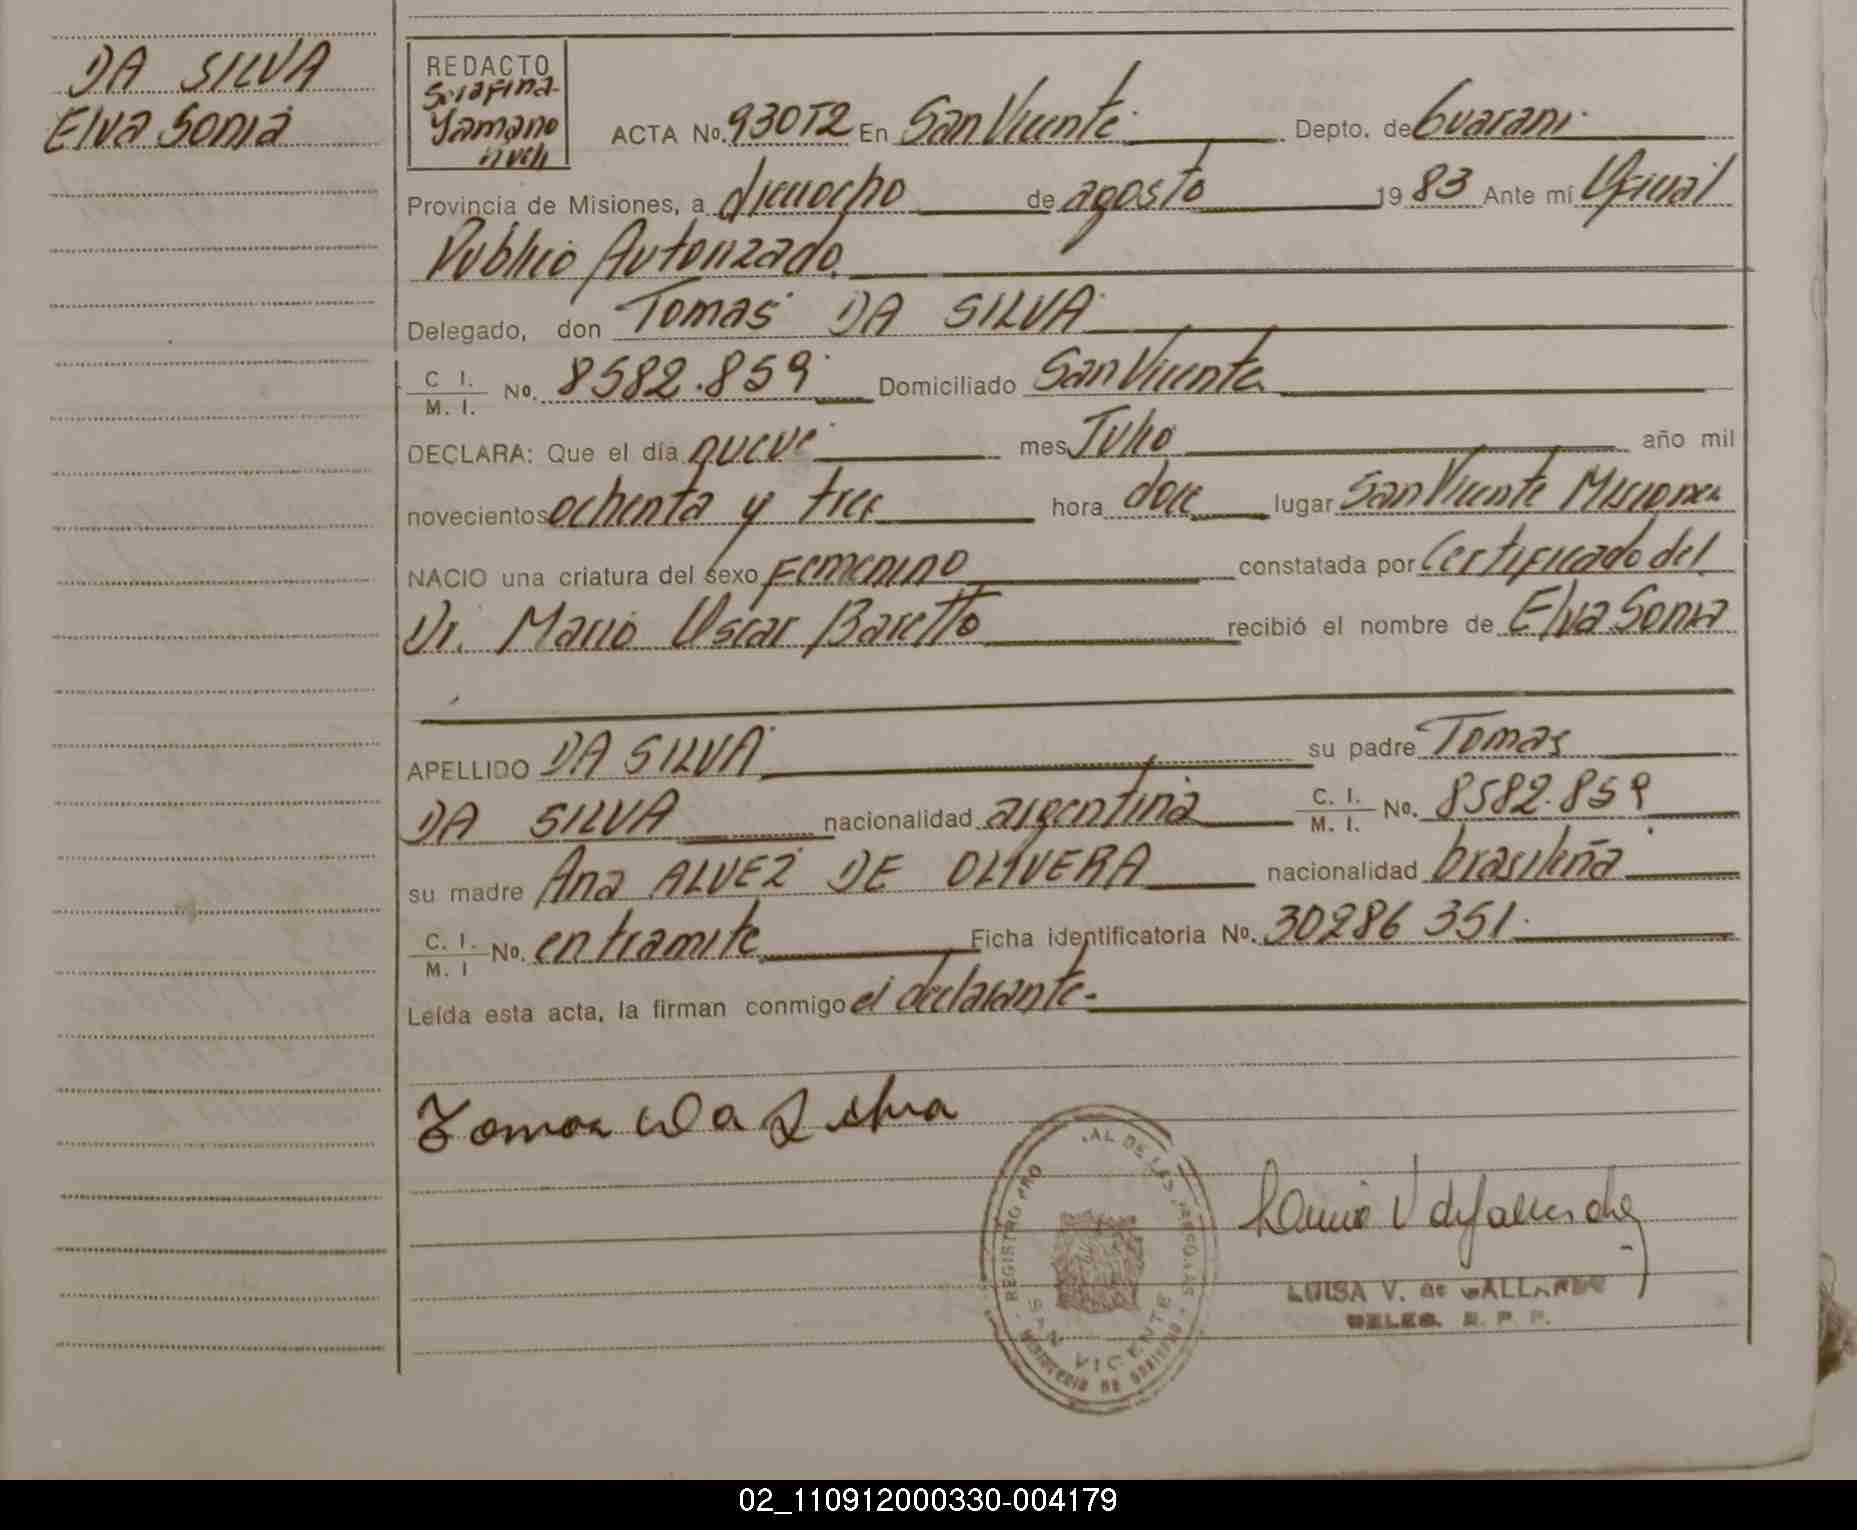 DA SILVA
Elva Sonia
REDACTO
Serafina
Yamano
ACTA No. 930T2 En San Vicente Depto. de Guarani
Provincia de Misiones, a dieciocho de agosto 1983 Ante mí Oficial
Publico Autorizado
Delegado, don Tomas DA SILVA
C. I.
M. I. No. 8582.859 Domiciliado San Vicente
DECLARA: Que el día nueve mes Julio año mil
novecientos ochenta y tres hora doce lugar San Vicente Misiones
NACIO una criatura del sexo Femenino constatada por Certificado del
Dr. Mario Oscar Baretto recibió el nombre de Elva Sonia
APELLIDO DA SILVA su padre Tomas
DA SILVA nacionalidad argentina C. I. M. I. No. 8582.859
su madre Ana ALVEZ DE OLIVERA nacionalidad brasileña
C. I. M. I No. en tramite Ficha identificatoria No. 30286 351
Leída esta acta, la firman conmigo el declarante-
Tomas Da Silva
REGISTRO PRO AL DE LAS PERSONAS
SAN VICENTE
MINISTERIO DE GOBIERNO
LUISA V. de GALLARDO
DELEG. R. P. P.
02_110912000330-004179